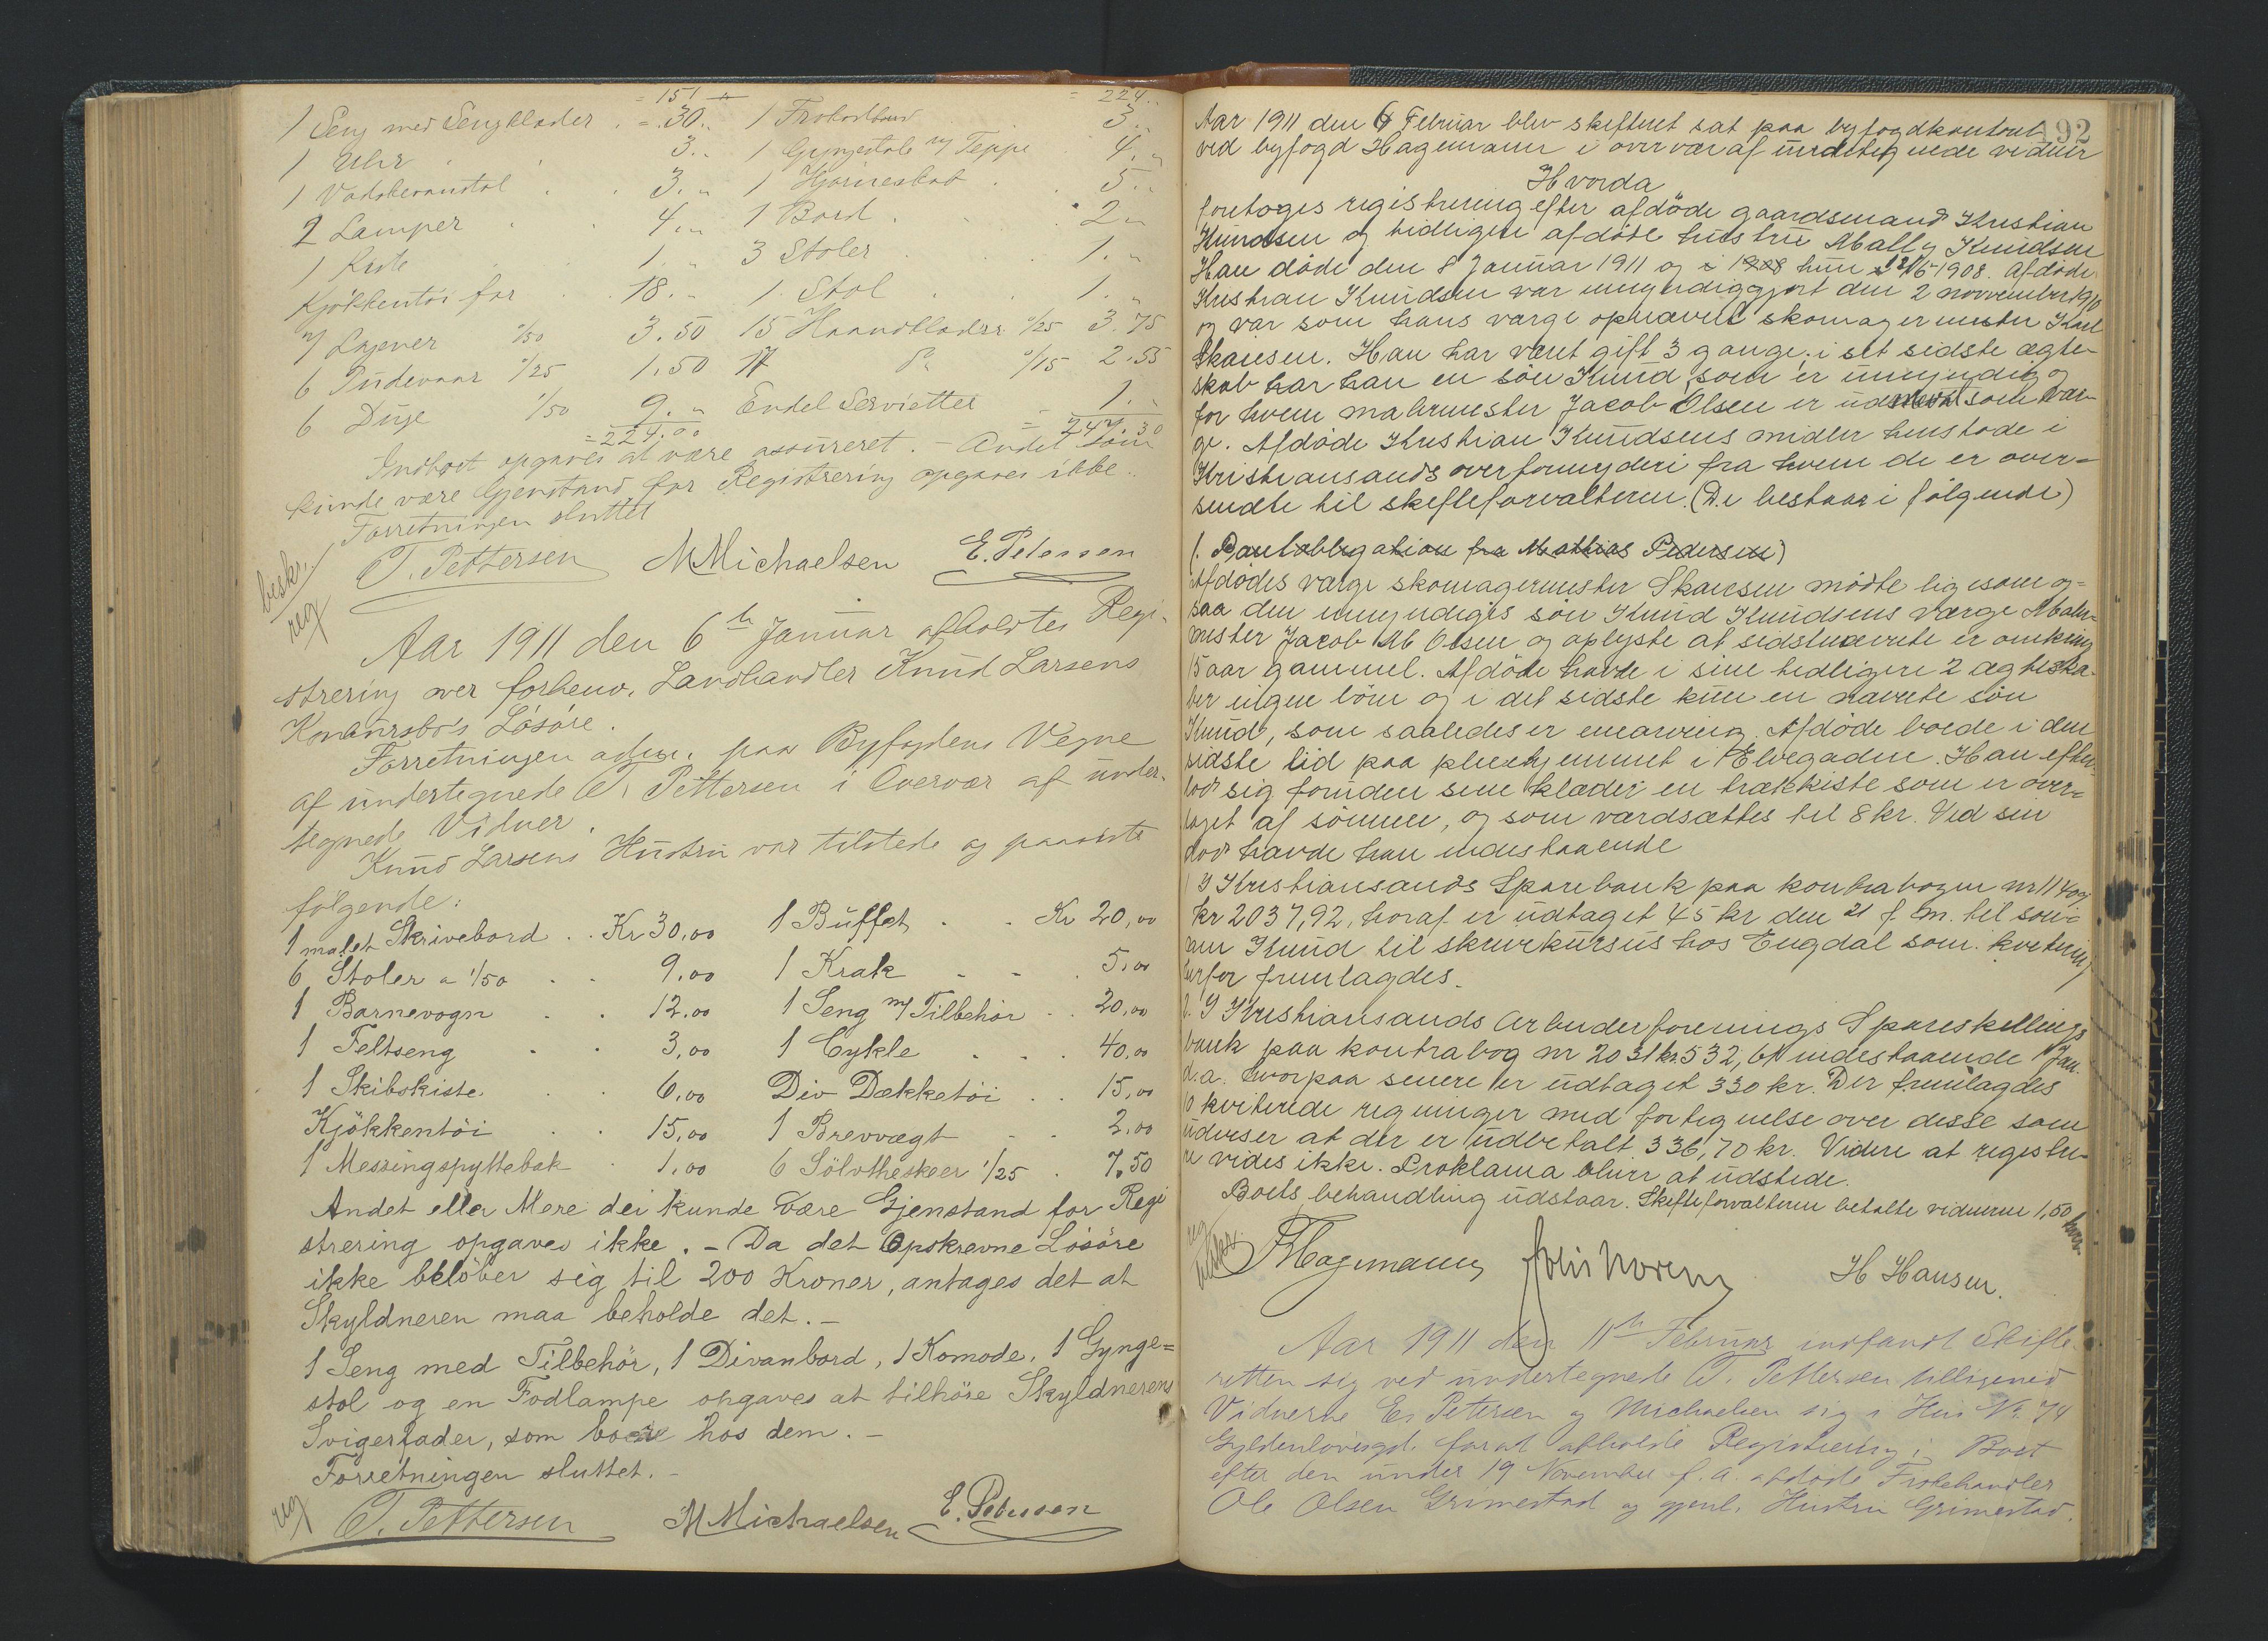 = 151 = 224..
1 Seng med Sengklæder . = 30.. 1 Frokostbord 3..
1 Uhr 3.. 1 Gyngestol m/ Teppe 4..
1 Vadskevandstol . . 3.. 1 Hjørneskab . . 5..
2 Lamper . . 4.. 1 Bord . . 2..
1 Kiste . . 1.. 3 Stoler . . 1..
Kjökkentöi for . . 18.. 1 Stol . . 1..
7 Lagener 1/50 3.50 15 Haandklæder 1/25 3.75
6 Pudevaar 1/25 1.50 17 Do 1/15 2.55
6 Duge 1/50 9.. Endel Servietter = 1..
= 224.00 247.30
Indboet opgaves at være assureret. – Andet som
kunde være Gjenstand for Registrering opgaves ikke.
Forretningen sluttet
T. Pettersen M Michaelsen E. Petersen
beskr.
reg
Aar 1911 den 6te Januar afholdtes Regi-
strering over forhenv. Landhandler Knud Larsens
Konkursbo's Lösöre.
Forretningen adm. paa Byfogdens Vegne
af undertegnede T. Pettersen i Overvær af under-
tegnede Vidner.
Knud Larsens Hustru var tilstede og paaviste
følgende:
1 malet Skrivebord . . Kr 30,00 1 Buffet . . Kr 20,00
6 Stoler a 1/50 . . 9.00 1 Krak . . 5,00
1 Barnevogn . . 12.00 1 Seng m/ Tilbehör . . 20,00
1 Feltseng . . 3,00 1 Cykle . . . 40,00
1 Skibskiste . . 6,00 Div Dækketöi . . 15,00
Kjökkentöi . . 15,00 1 Brevvægt . . 2.00
1 Messingspyttebak . 1,00 6 Sölvtheskeer 1/25 . 7.50
Andet eller Mere der kunde være Gjenstand for Regi
strering opgaves ikke. – Da det Opskrevne Lösöre
ikke belöber sig til 200 Kroner, antages det at
Skyldneren maa beholde det. –
1 Seng med Tilbehör, 1 Divanbord, 1 Komode, 1 Gynge=
stol og en Fodlampe opgaves at tilhöre Skyldnerens
Svigerfader, som boede hos dem. –
Forretningen sluttet. –
reg
T. Pettersen M Michaelsen E. Petersen
192
Aar 1911 den 6 Februar blev skifteret sat paa byfogdkontoret
ved byfogd Hagemann i overvær af undertegnede vidner
Hvorda
foretoges registrering efter afdöde gaardsmand Kristian
Knudsen og tidligere afdöde hustru Mally Knudsen
Han döde den 8 Januar 1911 og i 1908 hun 1908. Afdöde
Kristian Knudsen var umyndiggjort den 2 november 1910
og var som hans værge opnævnt skomagermester Karl
Skaiesen. Han har været gift 3 gange; i sit sidste ægte-
skab har han en sön Knud som er umyndig og
for hvem malermester Jacob Olsen er udnævnt som vær-
ge. Afdöde Kristian Knudsens midler henstode i
Kristiansands overformynderi fra hvem de er over=
sendte til skifteforvalteren. (De bestaar i fölgende)
1. Pantobligation fra Mathias Pedersen)
Afdödes værge skomagermester Skaiesen mödte ligesom og=
saa den umyndiges sön Knud Knudsens værge Maler=
mester Jacob M Olsen og oplyste at sidstnævnte er omkring
15 aar gammel. Afdöde havde i sine tidligere 2 ægteska-
ber ingen börn og i det sidste kun en nævnte sön
Knud, som saaledes er enearving. Afdöde boede i den
sidste tid paa pleiehjemmet i Elvegaden. Han efter-
lod sig foruden sine klæder en trækkiste som er over=
taget af sönnen, og som værdsættes til 8 kr. Ved sin
död havde han indestaaende
1 I Kristiansands Sparebank paa kontrabogen nr 11409
kr 2037,92, hvoraf er udtaget 45 kr den 21 f. m. til sön-
nen Knud til skrivekursus hos Engdal som. kvitering
herfor fremlagdes.
2. I Kristiansands Arbeiderforenings Spareskillings
bank paa kontrabog nr 2031 kr. 532,61 indestaaende 1 Jan.
d.a. hvorpaa senere er udtaget 330 kr. Der fremlagdes
10 kviterede regninger med fortegnelse over disse som
udviser at der er udbetalt 336,70 kr. Videre at registre-
re vides ikke. Proklama bliver at udstede.
Boets behandling udstaar. Skifteforvalteren betalte vidnerne 1,50 hver.
reg
beskr.
Hagemann H Hansen.
Aar 1911 den 11te Februar indfandt Skifte-
retten sig ved undertegnede T. Pettersen tilligemed
Vidnerne E. Petersen og Michaelsen sig i Hus No. 74
Gyldenlövesgd. forat afholde Registrering i Boet
efter den under 19 November f. A. afdöde Frokehandler
Ole Olsen Grimestad og gjenl. Hustru Grimestad.